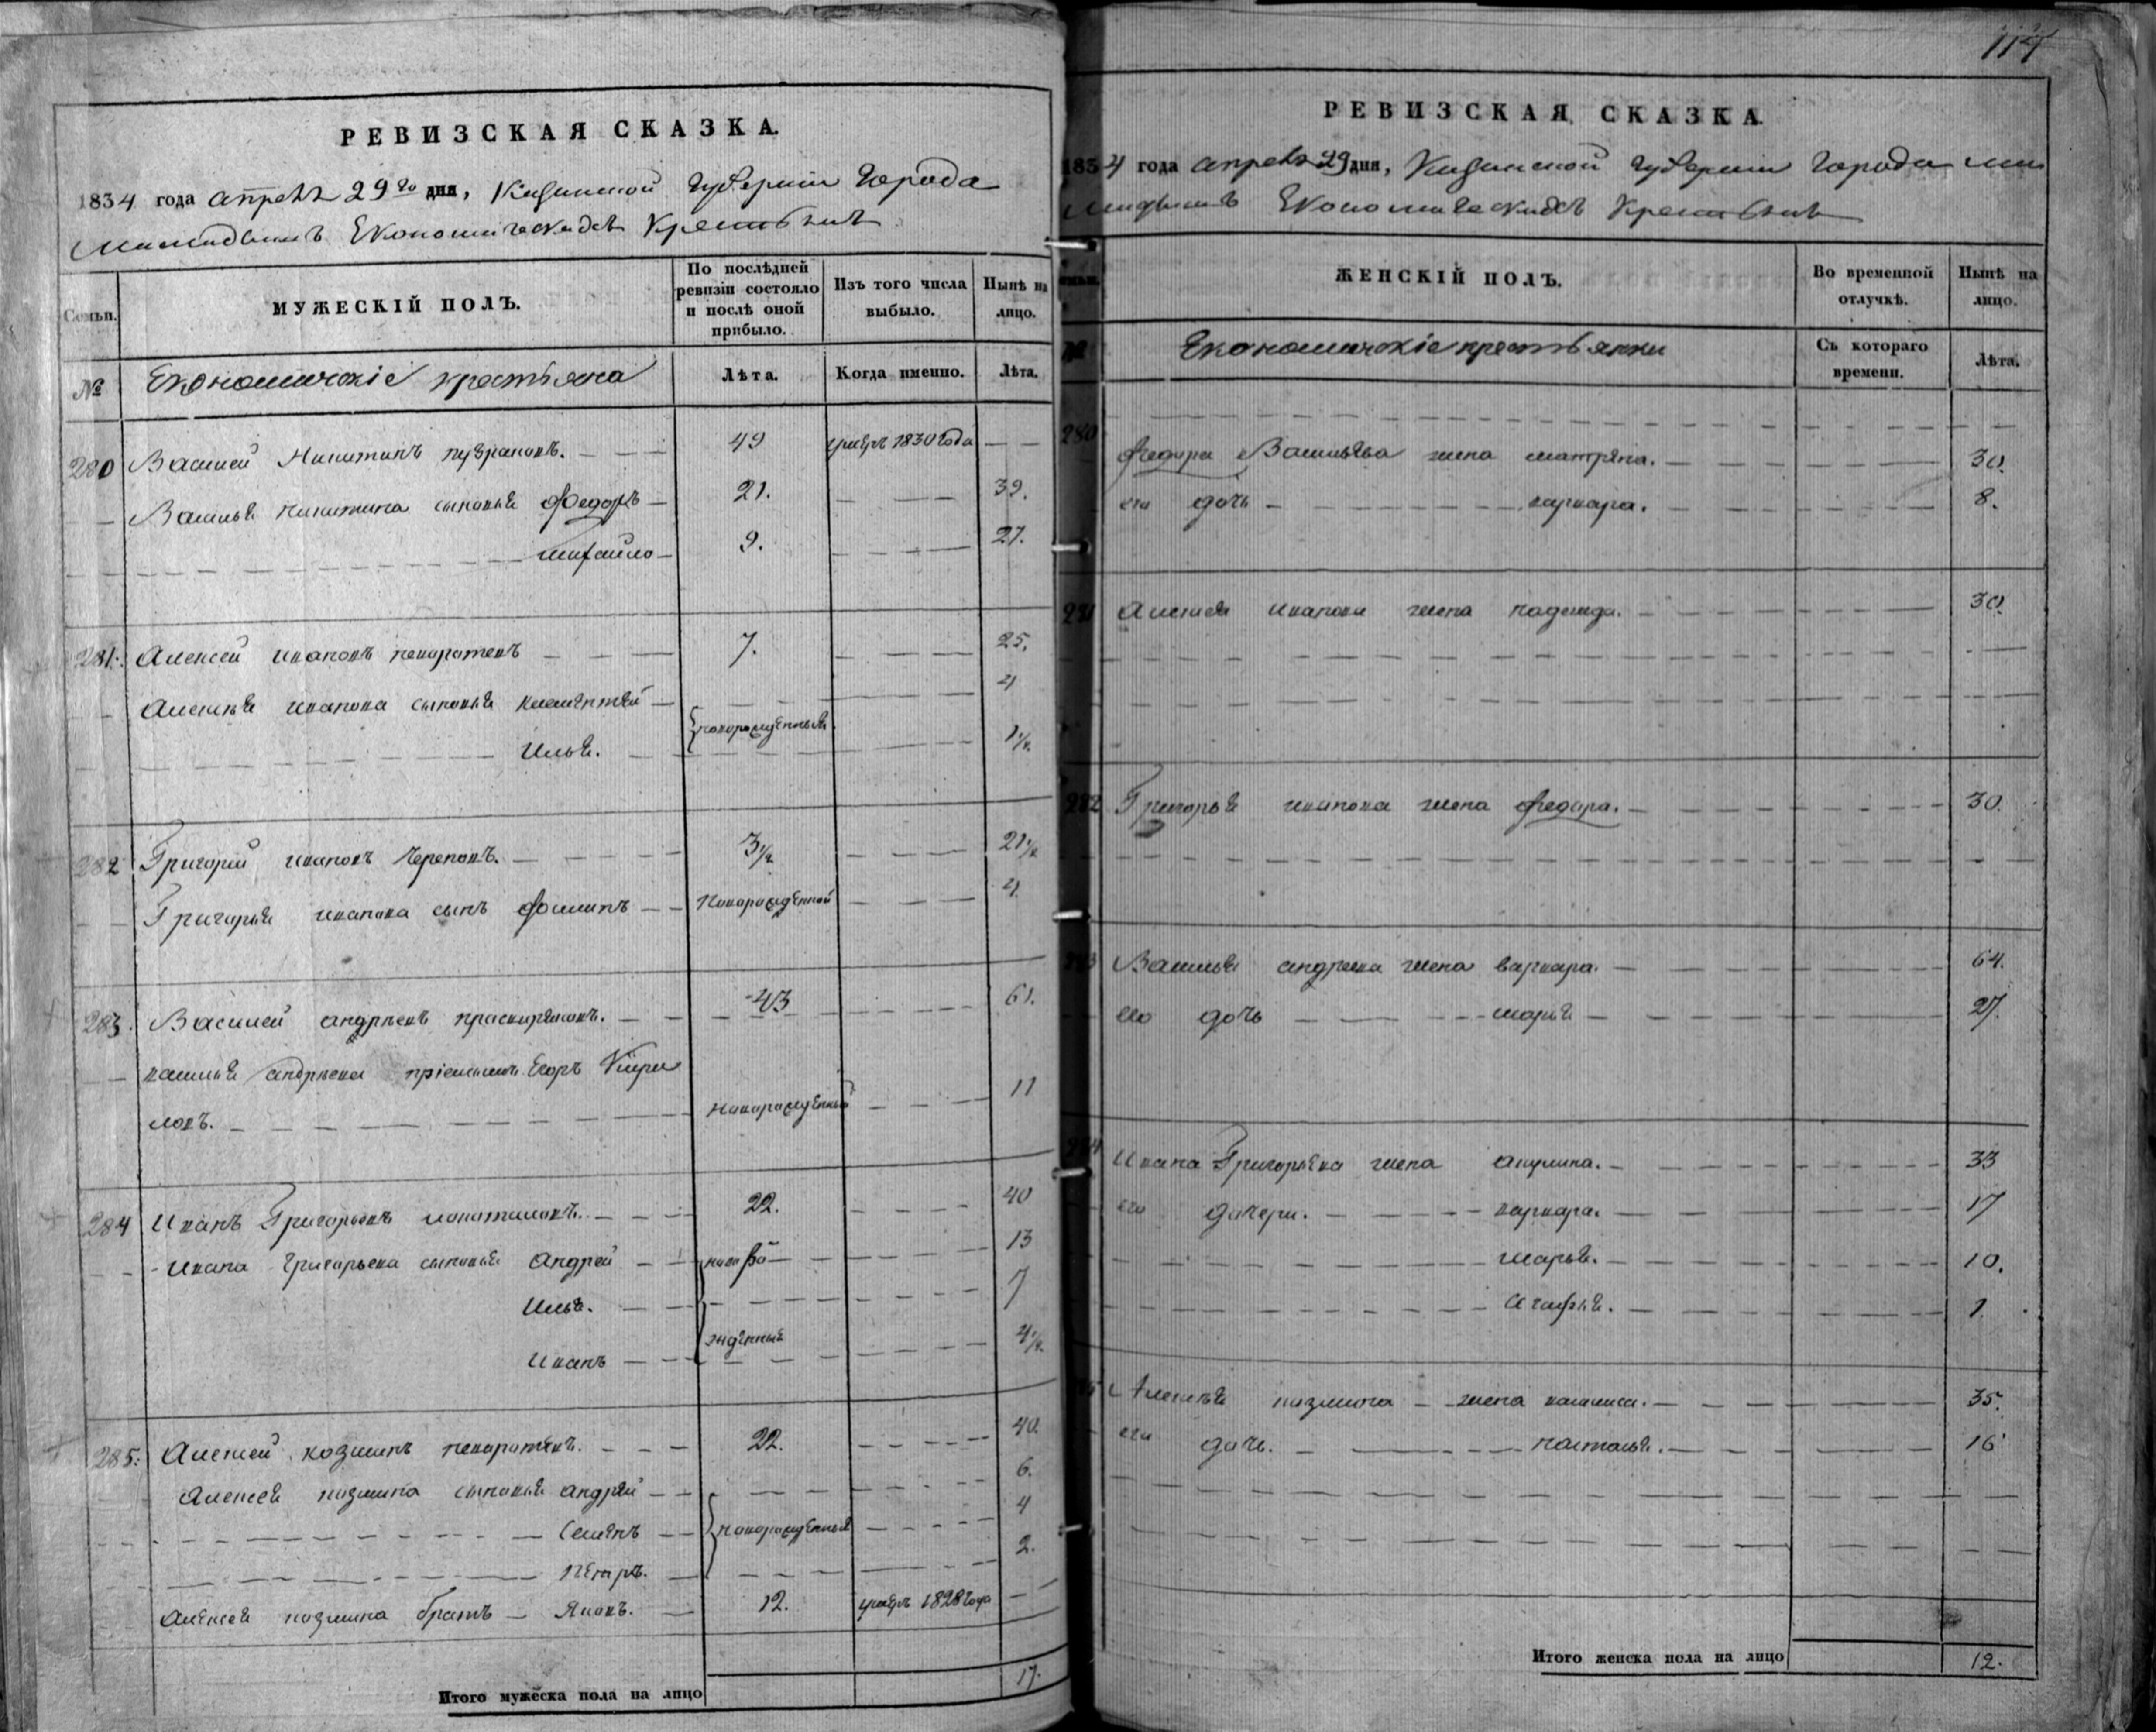 114
РЕВИЗСКАЯ СКАЗКА.
1834 года апреля 29го дня, Казанской губернии города
Мамадыша Економическихъ крестьянъ
Семьи.
МУЖЕСКІЙ ПОЛЪ.
По послѣдней ревизіи состояло и послѣ оной прибыло.
Изъ того числа выбыло.
Нынѣ на лицо.
№
Економическіе крестьяна
Лѣта.
Когда именно.
Лѣта.
280 Василей Никитинъ 49 умеръ 1830 года
Василья Никитина сыновья Федоръ 21. 39.
михайло 9. 27.
281. Алексей ивановъ 7. 25.
Алексея иванова сыновья 4
Илья. новорожденныя 1½.
282 Григорей ивановъ Черновъ. 3½ 21½
Григорья иванова сынъ фоминъ Новорожденной 4.
283. Василей андреевъ 43 61.
васильи андреева пріемышъ Егоръ Кири
ловъ. новорожденный 11
284 Иванъ Григорьевъ 22. 40
Ивана Григорьева сыновья Андрей ново 13
Илья. 7
Иванъ жденныя 4½.
285. Алексей козминъ 22. 40.
Алексея козмина сыновья андрей 6.
Семенъ новорожденныя 4
Петръ. 2.
Алексея козмина братъ Яковъ. 12. умеръ 1828 года
Итого мужеска пола на лицо 17.
РЕВИЗСКАЯ СКАЗКА
1834 года апреля 29 дня, Казанской губернии города ма
мадыша Економическихъ крестьянъ
ЖЕНСКІЙ ПОЛЪ.
Во временной отлучкѣ.
Нынѣ на лицо.
№
Економическіе крестьянки
Съ котораго времени.
Лѣта.
280
Федора Васильева жена матрена. 30.
его дочь варвара. 8.
281 Алексея иванова жена надежда. 30.
282 Григорья иванова жена федора. 30.
283 Василья андреева жена варвара. 64.
его дочь марья 27.
284 Ивана Григорьева жена акулина. 33
его дочери. варвара. 17
марья. 10.
Агафья. 1.
285 Алексея козмина жена василиса. 35.
его дочь. наталья. 16
Итого женска пола на лицо 12.